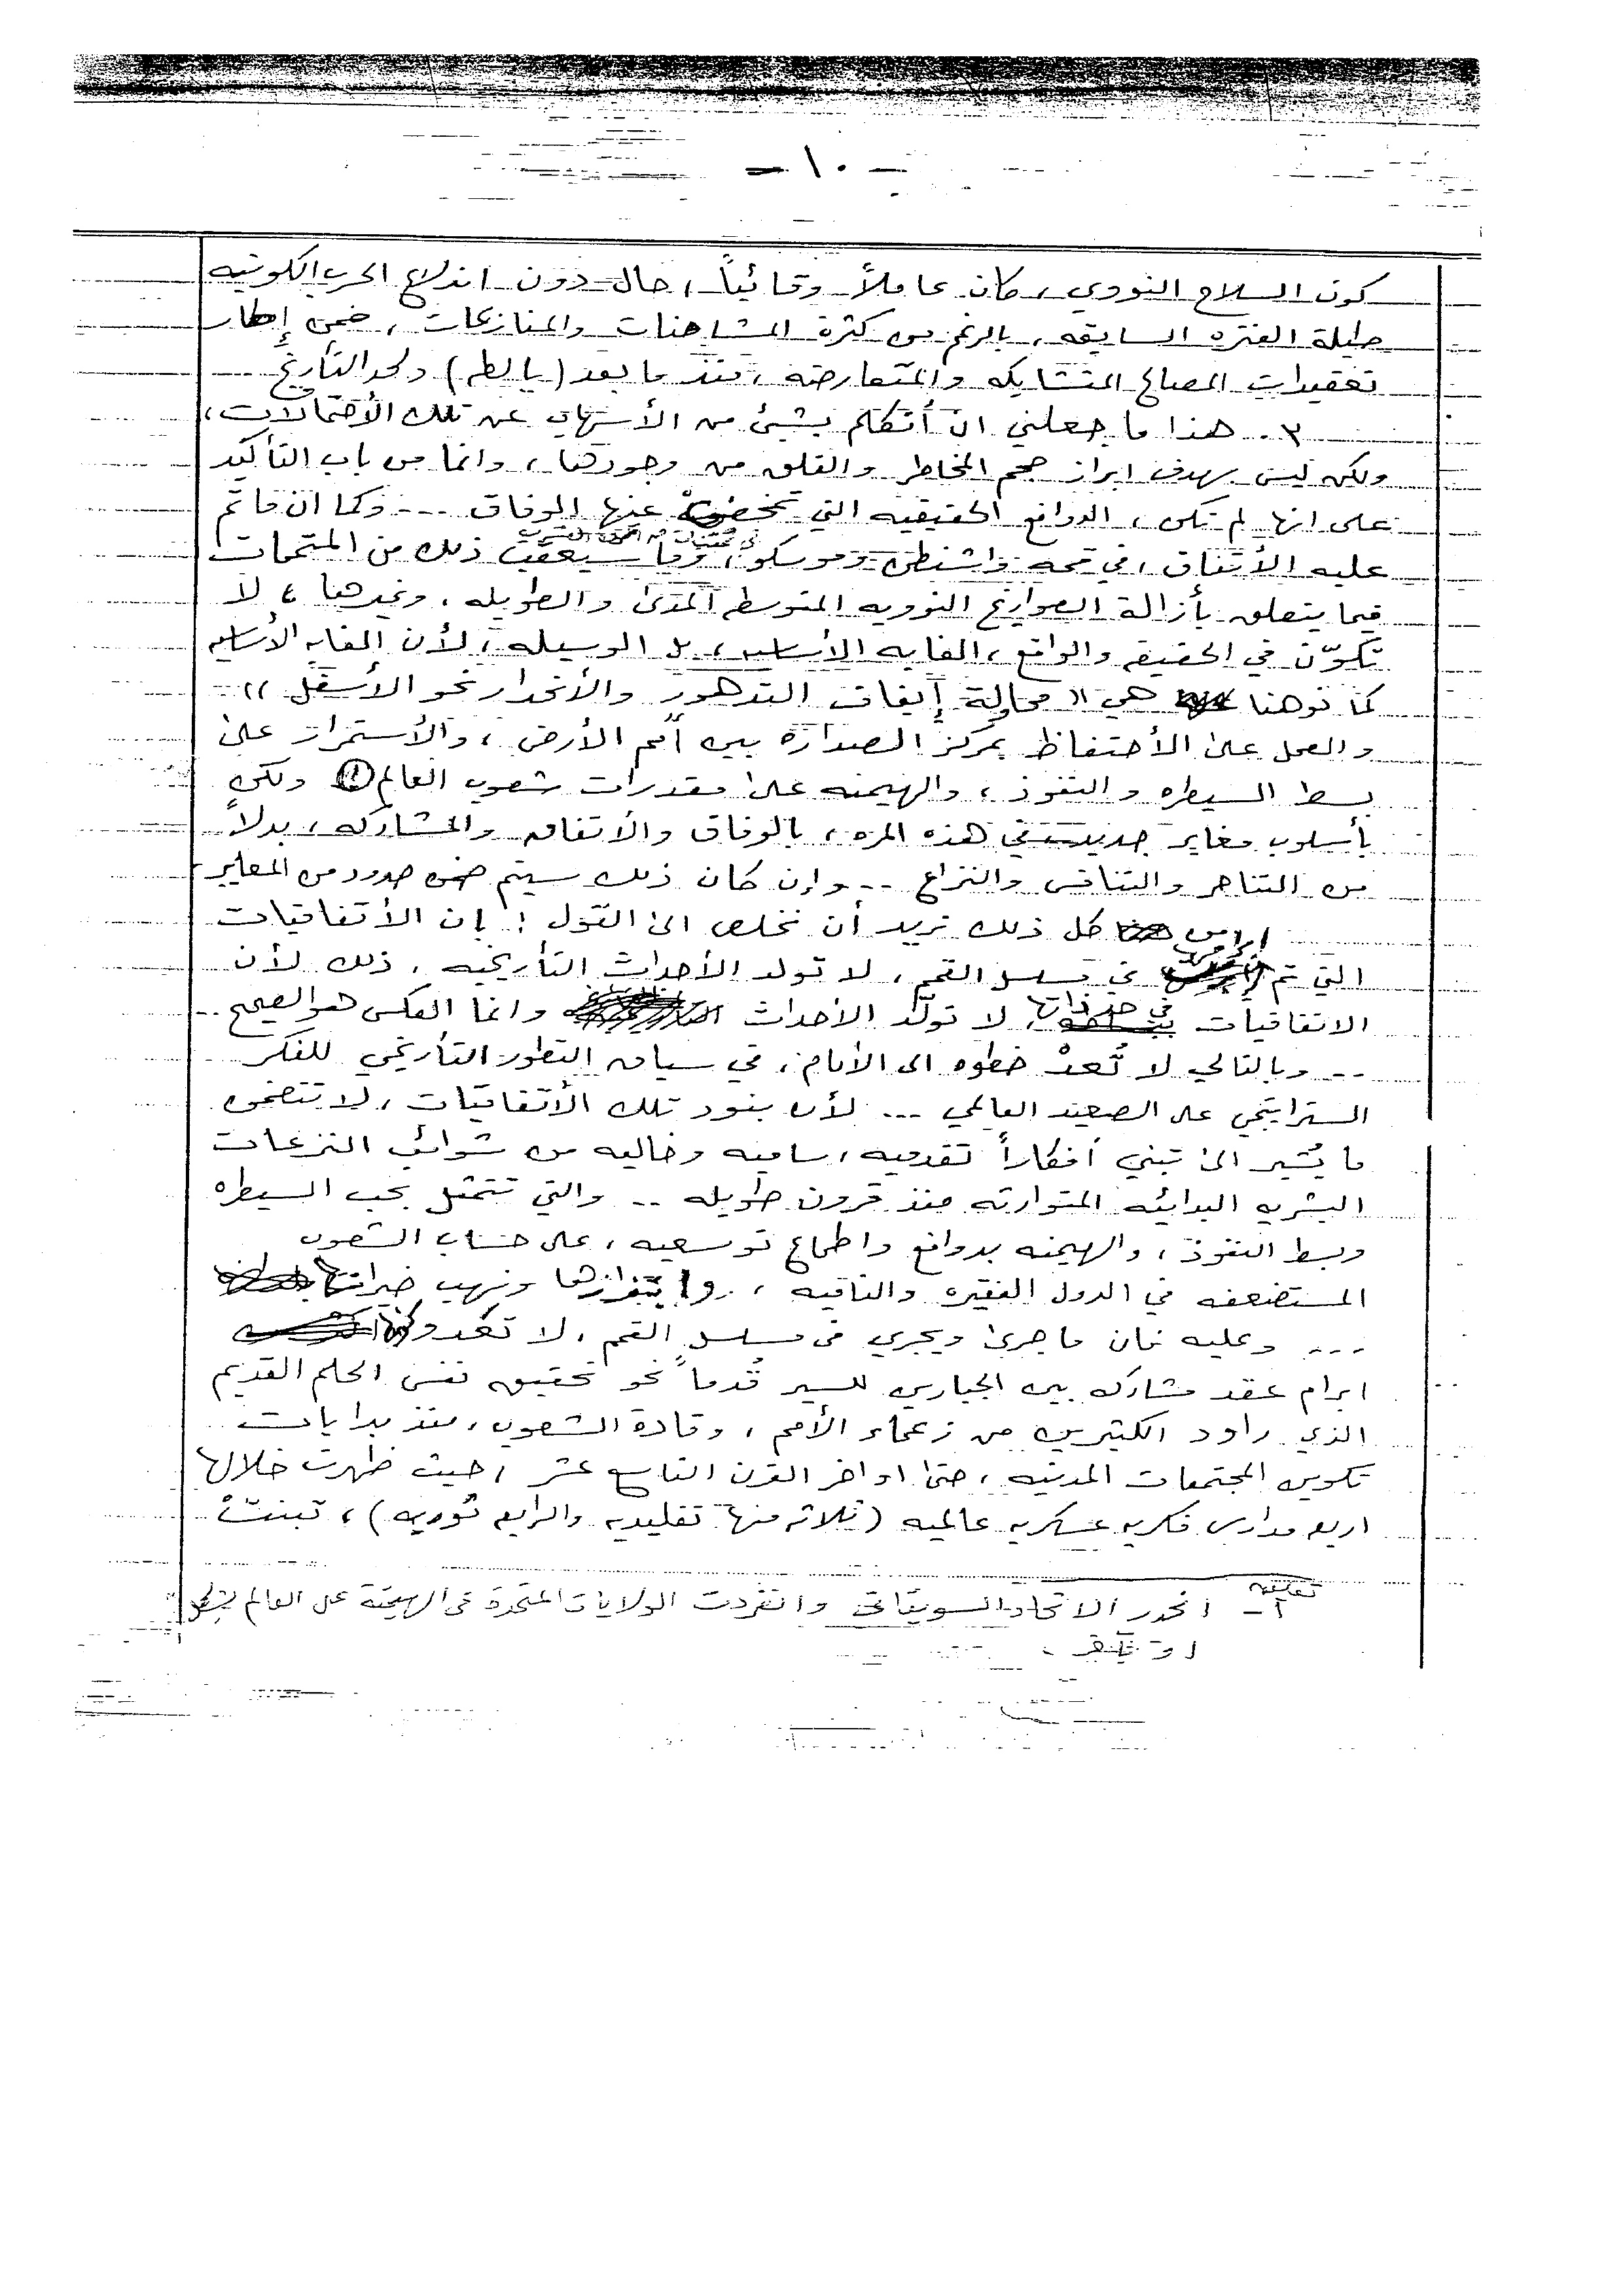 - ١٠ -
كون السلاح النووي، كان عاملاً وقائياً، حال دون اندلاع الحرب الكونيه
طيلة الفتره السابقه، بالرغم من كثرة المشاحنات والمنازعات، ضمن إطار
تعقيدات المصالح المتشابكه والمتعارضه، منذ ما بعد (يالطه) ولحد التأريخ
٣. هذا ما جعلني ان أتكلم بشيئ من الأسهاب عن تلك الأحتمالات،
ولكن ليس بهدف ابراز حجم المخاطر والقلق من وجودها، وانما من باب التأكيد
على انها لم تكن، الدوافع الحقيقيه التي تمخض عنها الوفاق --- وكما ان ما تم
عليه الأتفاق، في قمة واشنطن وموسكو، وما سيعقب ذلك من المتمات
فيما يتعلق بأزالة الصواريخ النوويه المتوسطه المدى والطويله، وغيرها، لا
تكوّن في الحقيقه والواقع، الغايه الأساسيه، بل الوسيله، لأن الغايه الأساسيه
كما نوهنا هي «محاولة إيقاف التدهور والأنحدار نحو الأسفل»
والعمل على الأحتفاظ بمركز الصدارة بين أمم الأرض، والأستمرار على
بسط السيطره والنفوذ، والهيمنه على مقدرات شعوب العالم (١) ولكن
بأسلوب مغاير جديد في هذه المره، بالوفاق والأتفاق والمشاركه، بدلاً
من التناحر والتنافس والنزاع -- وإن كان ذلك سيتم ضمن حدود من المعايير
من كل ذلك نريد أن نخلص الى القول: إن الأتفاقيات
التي تم ابرامها في مسلسل القمم، لا تولد الأحداث التأريخيه، ذلك لأن
الاتفاقيات في حد ذاتها، لا تولّد الأحداث وانما العكس هو الصحيح --
-- وبالتالي لا تُعدْ خطوه الى الأمام، في سياق التطور التأريخي للفكر
الستراتيجي على الصعيد العالمي --- لأن بنود تلك الأتفاقيات، لا تتضمن
ما يُشير الى تبني أفكاراً تقدميه، ساميه وخاليه من شوائب النزعات
البشريه البدائيه المتوارثه منذ قرون طويله -- والتي تتمثل بحب السيطره
وبسط النفوذ، والهيمنه بدوافع واطماع توسعيه، على حساب الشعوب
المستضعفه في الدول الفقيره والناميه، وابتزازها ونهب خيراتها
--- وعليه فان ما جرى ويجري في مسلسل القمم، لا تعدو كونها
ابرام عقد مشاركه بين الجبارين للسير قُدماً نحو تحقيق نفس الحلم القديم
الذي راود الكثيرين من زعماء الأمم، وقادة الشعوب، منذ بدايات
تكوين المجتمعات المدنيه، حتى اواخر القرن التاسع عشر، حيث ظهرت خلالها
اربع مدارس فكريه عسكريه عالميه (ثلاثه منها تقليديه والرابعه ثوريه)، تبنتْ
تعليق
١- انحدر الاتحاد السوفياتي وانفردت الولايات المتحدة في الهيمنة على العالم بشكل